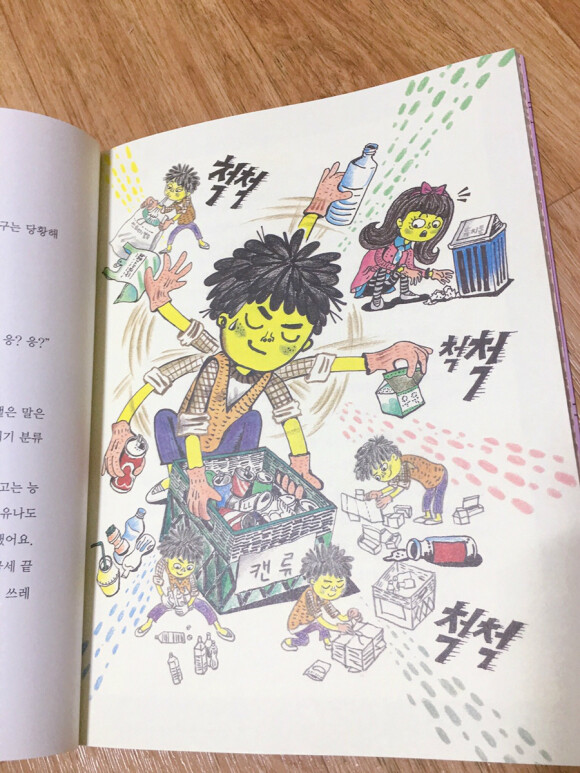 구는 당황해
응? 응?"
은 말은
기 분류
고는 능
유나도
했어요.
세 끝
쓰레
척척
척척
우유
캔류
척척